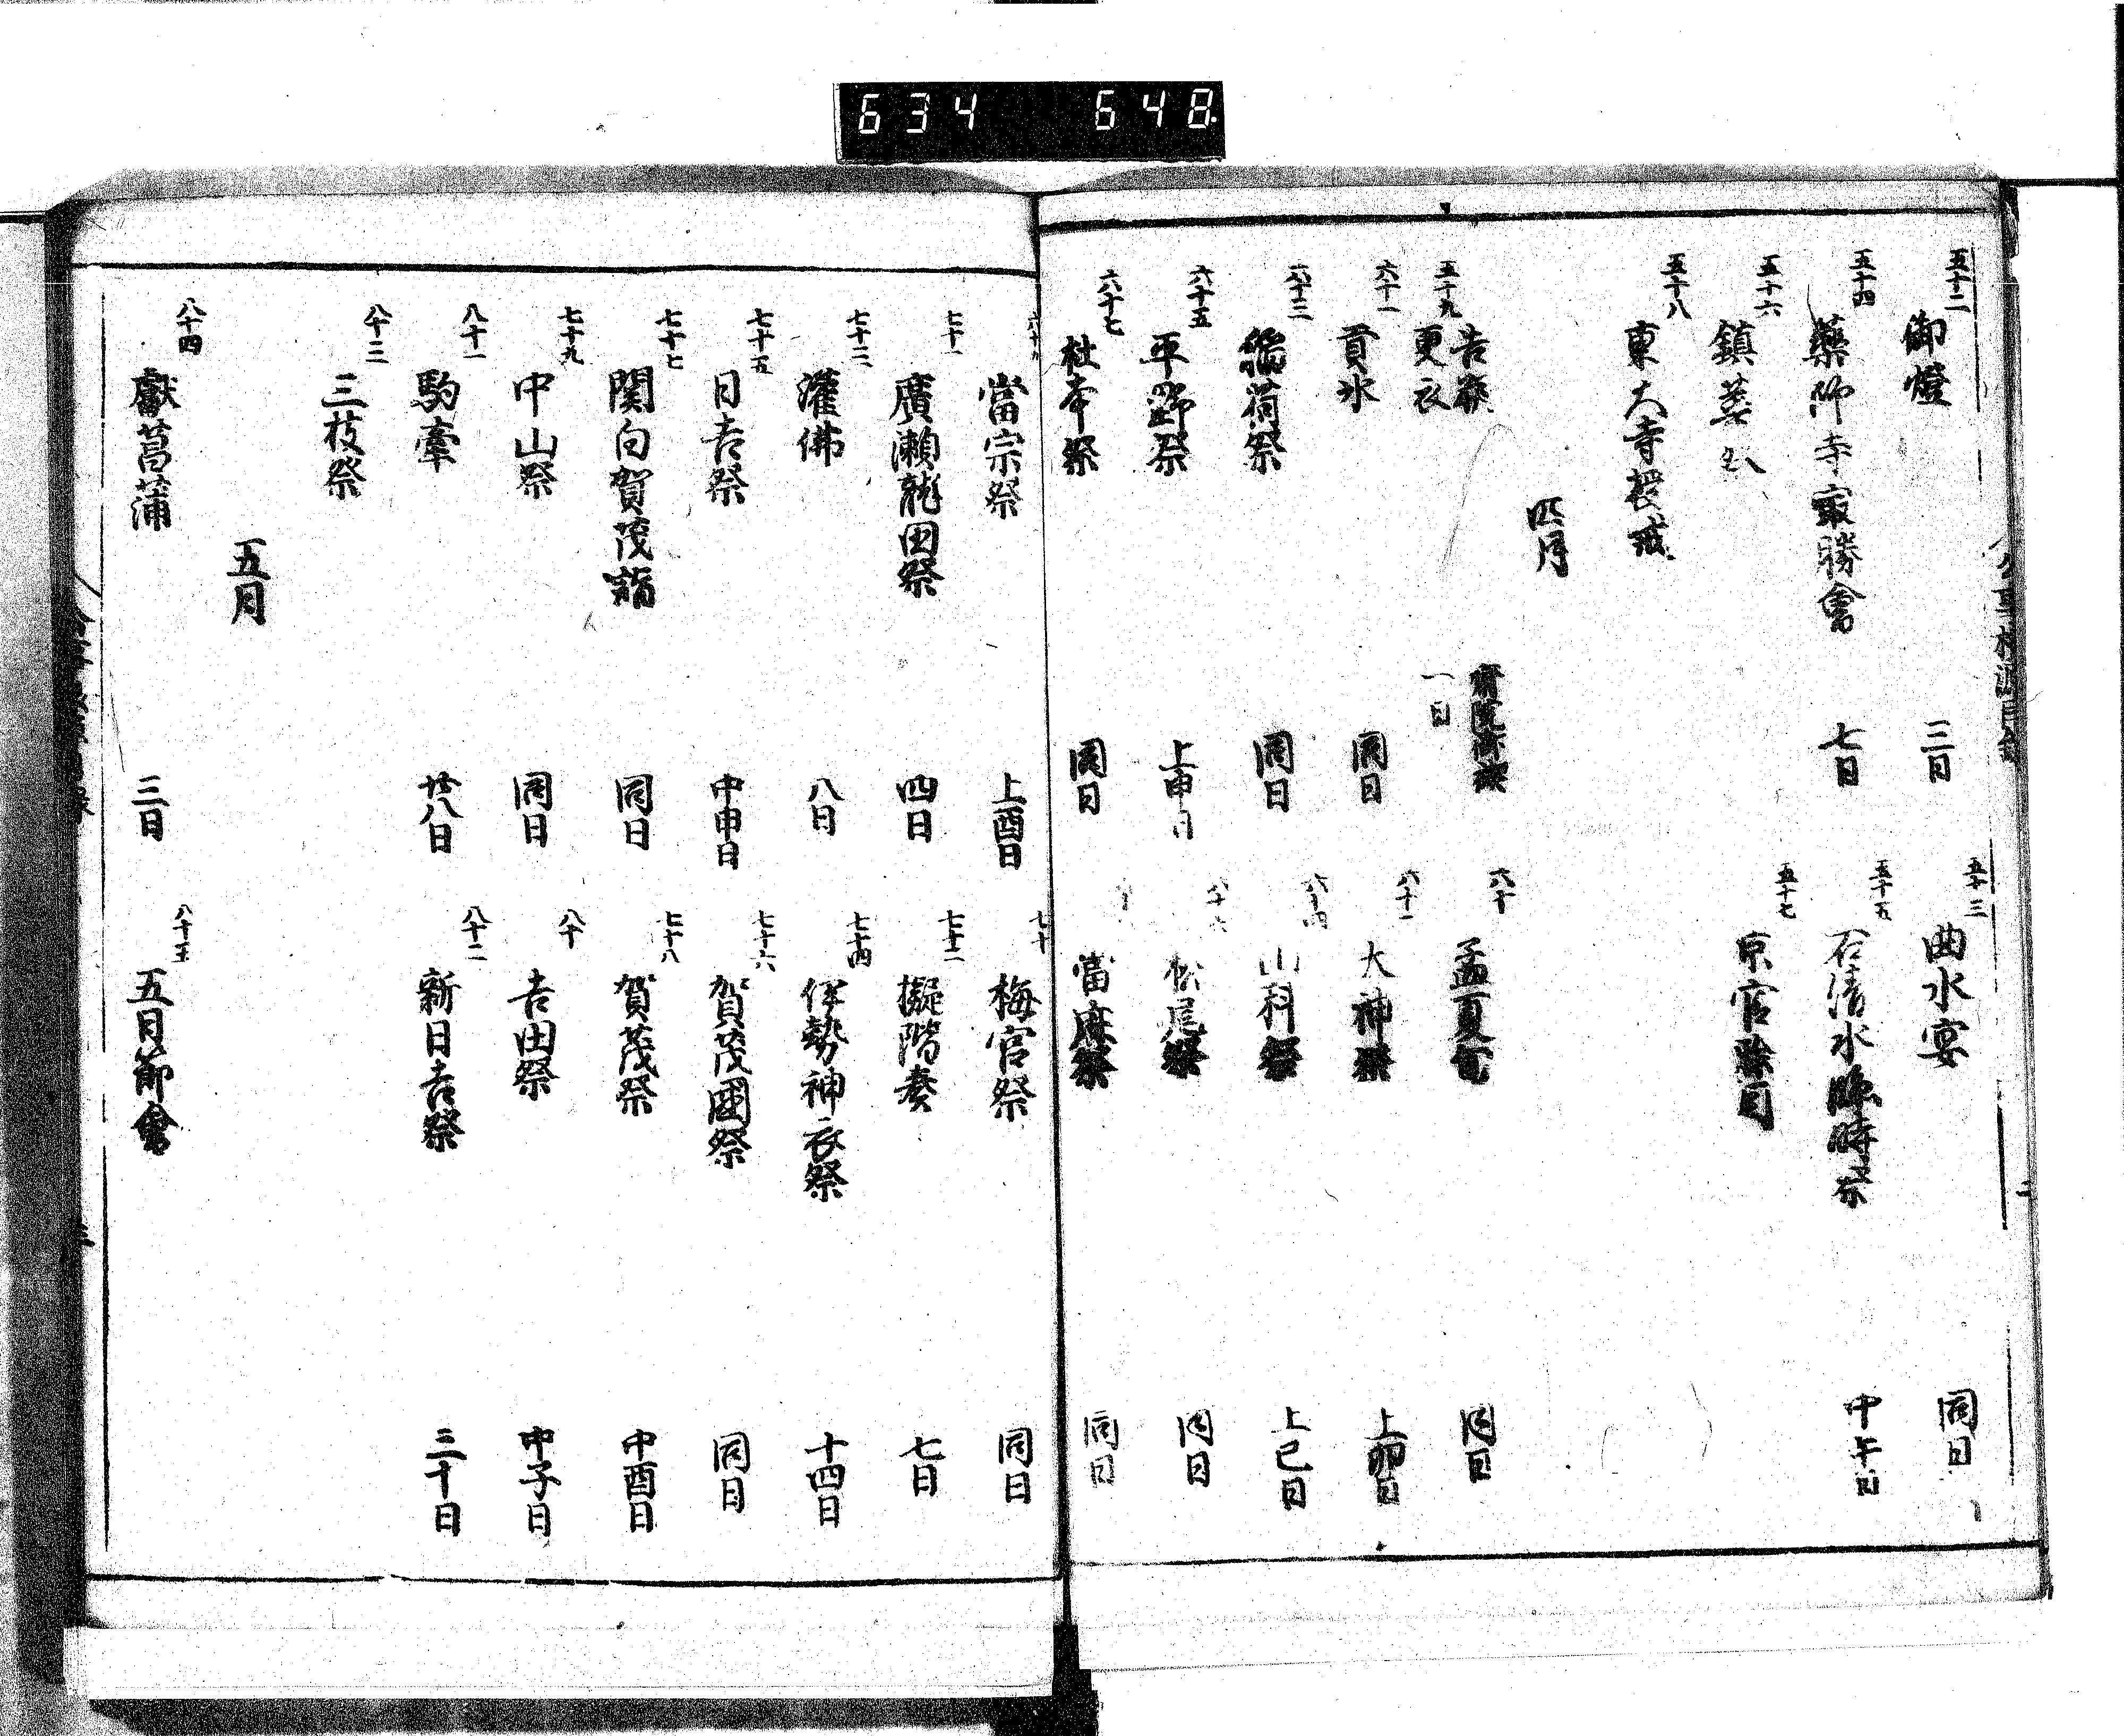 634 648
五十二 御燈 三日
五十三 曲水宴 同日
五十四 藥師寺寂勝會 七日
五十五 石清水臨時祭 中午日
五十六 鎮花祭
五十七 京官除目
五十八 東大寺授戒
四月
告朔
五十九 更衣 一日
六十 孟夏旬 同日
貢氷 同日
大神祭 上卯日
稲荷祭 同日
六十四 山科祭 上巳日
六十五 平野祭 上申日
六十六 松尾祭 同日
六十七 杜本祭 同日
當麻祭 同日
當宗祭 上酉日
七十 梅宮祭 同日
七十一 廣瀬龍田祭 四日
七十二 擬階奏 七日
七十三 灌佛 八日
七十四 伊勢神衣祭 十四日
七十五 日吉祭 中申日
七十六 賀茂國祭 同日
七十七 関白賀茂詣 同日
七十八 賀茂祭 中酉日
七十九 中山祭 同日
八十 吉田祭 中子日
八十一 駒牽 廿八日
八十二 新日吉祭 三十日
八十三 三枝祭
五月
八十四 獻菖蒲 三日
八十五 五日節會